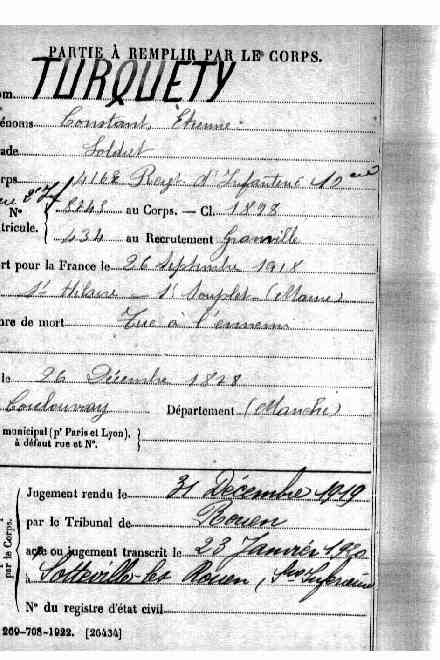 PARTIE À REMPLIR PAR LE CORPS.
om TURQUETY
énoms Constant, Etienne
ade Soldat
rps 416e Regt d'Infanterie 10 cie
N° 8843 au Corps. — Cl. 1898
tricule. 434 au Recrutement Granville
rt pour la France le 26 septembre 1918
St Hilaire - St Souplet (Marne)
nre de mort Tué à l'ennemi
le 26 Décembre 1878
Coulouvray Département (Manche)
municipal (pr Paris et Lyon),
à défaut rue et N°.
par le Corps.
Jugement rendu le 31 Décembre 1919
par le Tribunal de Rouen
acte ou jugement transcrit le 23 Janvier 1920
à Sotteville-les Rouen, Sne Inférieure
N° du registre d'état civil
269-708-1922. [26434]